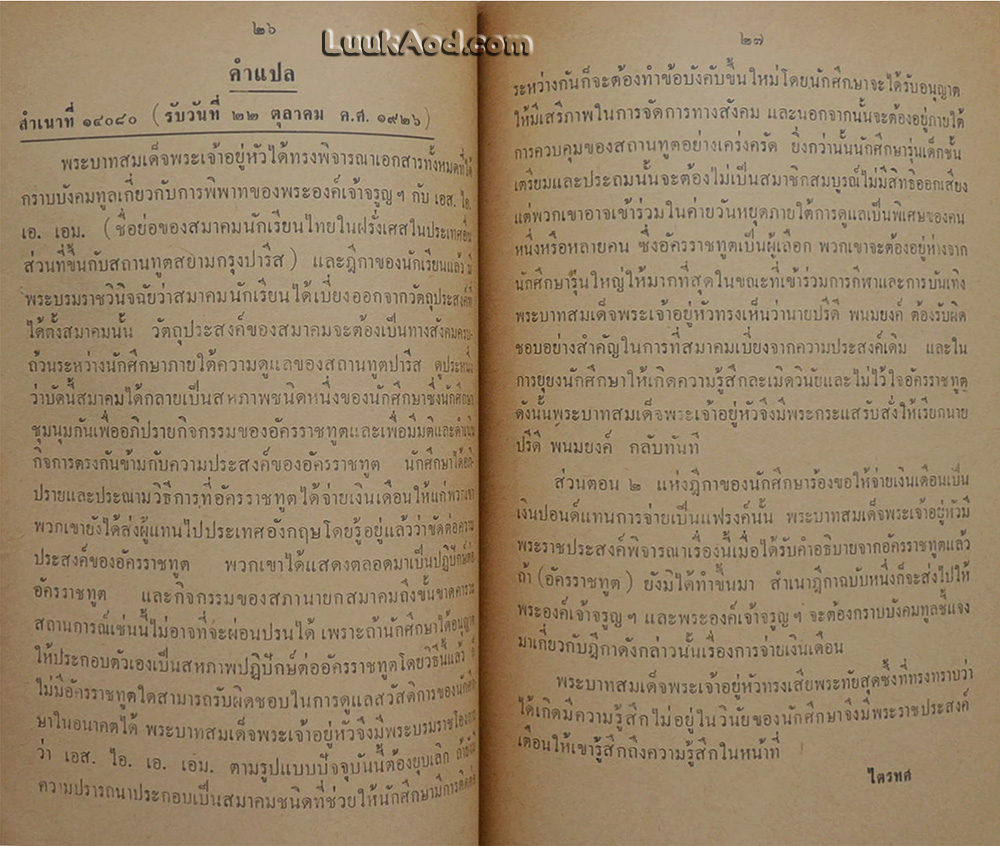 ๒๖
LuukAod.com
คำแปล
สำเนาที่ ๑๔๐๘๐ (รับวันที่ ๒๒ ตุลาคม ค.ศ. ๑๙๒๖)
พระบาทสมเด็จพระเจ้าอยู่หัวได้ทรงพิจารณาเอกสารทั้งหมดที่ได้
กราบบังคมทูลเกี่ยวกับการพิพาทของพระองค์เจ้าจรูญฯ กับ เอส. ไอ.
เอ. เอม. (ชื่อย่อของสมาคมนักเรียนไทยในฝรั่งเศสในประเทศอื่น
ส่วนที่ขึ้นกับสถานทูตสยามกรุงปารีส) และฎีกาของนักเรียนแล้ว มี
พระบรมราชวินิจฉัยว่าสมาคมนักเรียนได้เบี่ยงออกจากวัตถุประสงค์ที่
ได้ตั้งสมาคมนั้น วัตถุประสงค์ของสมาคมจะต้องเป็นทางสังคมครบ
ถ้วนระหว่างนักศึกษาภายใต้ความดูแลของสถานทูตปารีส ดูประหนึ่ง
ว่าบัดนี้สมาคมได้กลายเป็นสหภาพชนิดหนึ่งของนักศึกษาซึ่งนักศึกษา
ชุมนุมกันเพื่ออภิปรายกิจกรรมของอัครราชทูตและเพื่อมีมติและดำเนิน
กิจการตรงกันข้ามกับความประสงค์ของอัครราชทูต นักศึกษาได้อภิ-
ปรายและประณามวิธีการที่อัครราชทูตได้จ่ายเงินเดือนให้แก่พวกเขา
พวกเขายังได้ส่งผู้แทนไปประเทศอังกฤษโดยรู้อยู่แล้วว่าขัดต่อความ
ประสงค์ของอัครราชทูต พวกเขาได้แสดงตลอดมาเป็นปฏิปักษ์ต่อ
อัครราชทูต และกิจกรรมของสภานายกสมาคมถึงขั้นขาดคารวะ
สถานการณ์เช่นนี้ไม่อาจที่จะผ่อนปรนได้ เพราะถ้านักศึกษาได้อนุญาต
ให้ประกอบตัวเองเป็นสหภาพปฏิปักษ์ต่ออัครราชทูตโดยวิธีนี้แล้ว ก็
ไม่มีอัครราชทูตใดสามารถรับผิดชอบในการดูแลสวัสดิการของนักศึก-
ษาในอนาคตได้ พระบาทสมเด็จพระเจ้าอยู่หัวจึงมีพระบรมราชโองการ
ว่า เอส. ไอ. เอ. เอม. ตามรูปแบบปัจจุบันนี้ต้องยุบเลิก ถ้ายังมี
ความปรารถนาประกอบเป็นสมาคมชนิดที่ช่วยให้นักศึกษามีการติดต่อ
๒๗
ระหว่างกันก็จะต้องทำข้อบังคับขึ้นใหม่โดยนักศึกษาจะได้รับอนุญาต
ให้มีเสรีภาพในการจัดการทางสังคม และนอกจากนั้นจะต้องอยู่ภายใต้
การควบคุมของสถานทูตอย่างเคร่งครัด ยิ่งกว่านั้นนักศึกษารุ่นเด็กชั้น
เตรียมและประถมนั้นจะต้องไม่เป็นสมาชิกสมบูรณ์ไม่มีสิทธิออกเสียง
แต่พวกเขาอาจเข้าร่วมในค่ายวันหยุดภายใต้การดูแลเป็นพิเศษของคน
หนึ่งหรือหลายคน ซึ่งอัครราชทูตเป็นผู้เลือก พวกเขาจะต้องอยู่ห่างจาก
นักศึกษารุ่นใหญ่ให้มากที่สุดในขณะที่เข้าร่วมการกีฬาและการบันเทิง
พระบาทสมเด็จพระเจ้าอยู่หัวทรงเห็นว่านายปรีดี พนมยงค์ ต้องรับผิด
ชอบอย่างสำคัญในการที่สมาคมเบี่ยงจากความประสงค์เดิม และใน
การยุยงนักศึกษาให้เกิดความรู้สึกละเมิดวินัยและไม่ไว้ใจอัครราชทูต
ดังนั้นพระบาทสมเด็จพระเจ้าอยู่หัวจึงมีพระกระแสรับสั่งให้เรียกนาย
ปรีดี พนมยงค์ กลับทันที
ส่วนตอน ๒ แห่งฎีกาของนักศึกษาร้องขอให้จ่ายเงินเดือนเป็น
เงินปอนด์แทนการจ่ายเป็นแฟรงค์นั้น พระบาทสมเด็จพระเจ้าอยู่หัวมี
พระราชประสงค์พิจารณาเรื่องนี้เมื่อได้รับคำอธิบายจากอัครราชทูตแล้ว
ถ้า (อัครราชทูต) ยังมิได้ทำขึ้นมา สำเนาฎีกาฉบับหนึ่งก็จะส่งไปให้
พระองค์เจ้าจรูญฯ และพระองค์เจ้าจรูญฯ จะต้องกราบบังคมทูลชี้แจง
มาเกี่ยวกับฎีกาดังกล่าวนั้นเรื่องการจ่ายเงินเดือน
พระบาทสมเด็จพระเจ้าอยู่หัวทรงเสียพระทัยสุดซึ้งที่ทรงทราบว่า
ได้เกิดมีความรู้สึกไม่อยู่ในวินัยของนักศึกษาจึงมีพระราชประสงค์
เตือนให้เขารู้สึกถึงความรู้สึกในหน้าที่
ไตรทศ